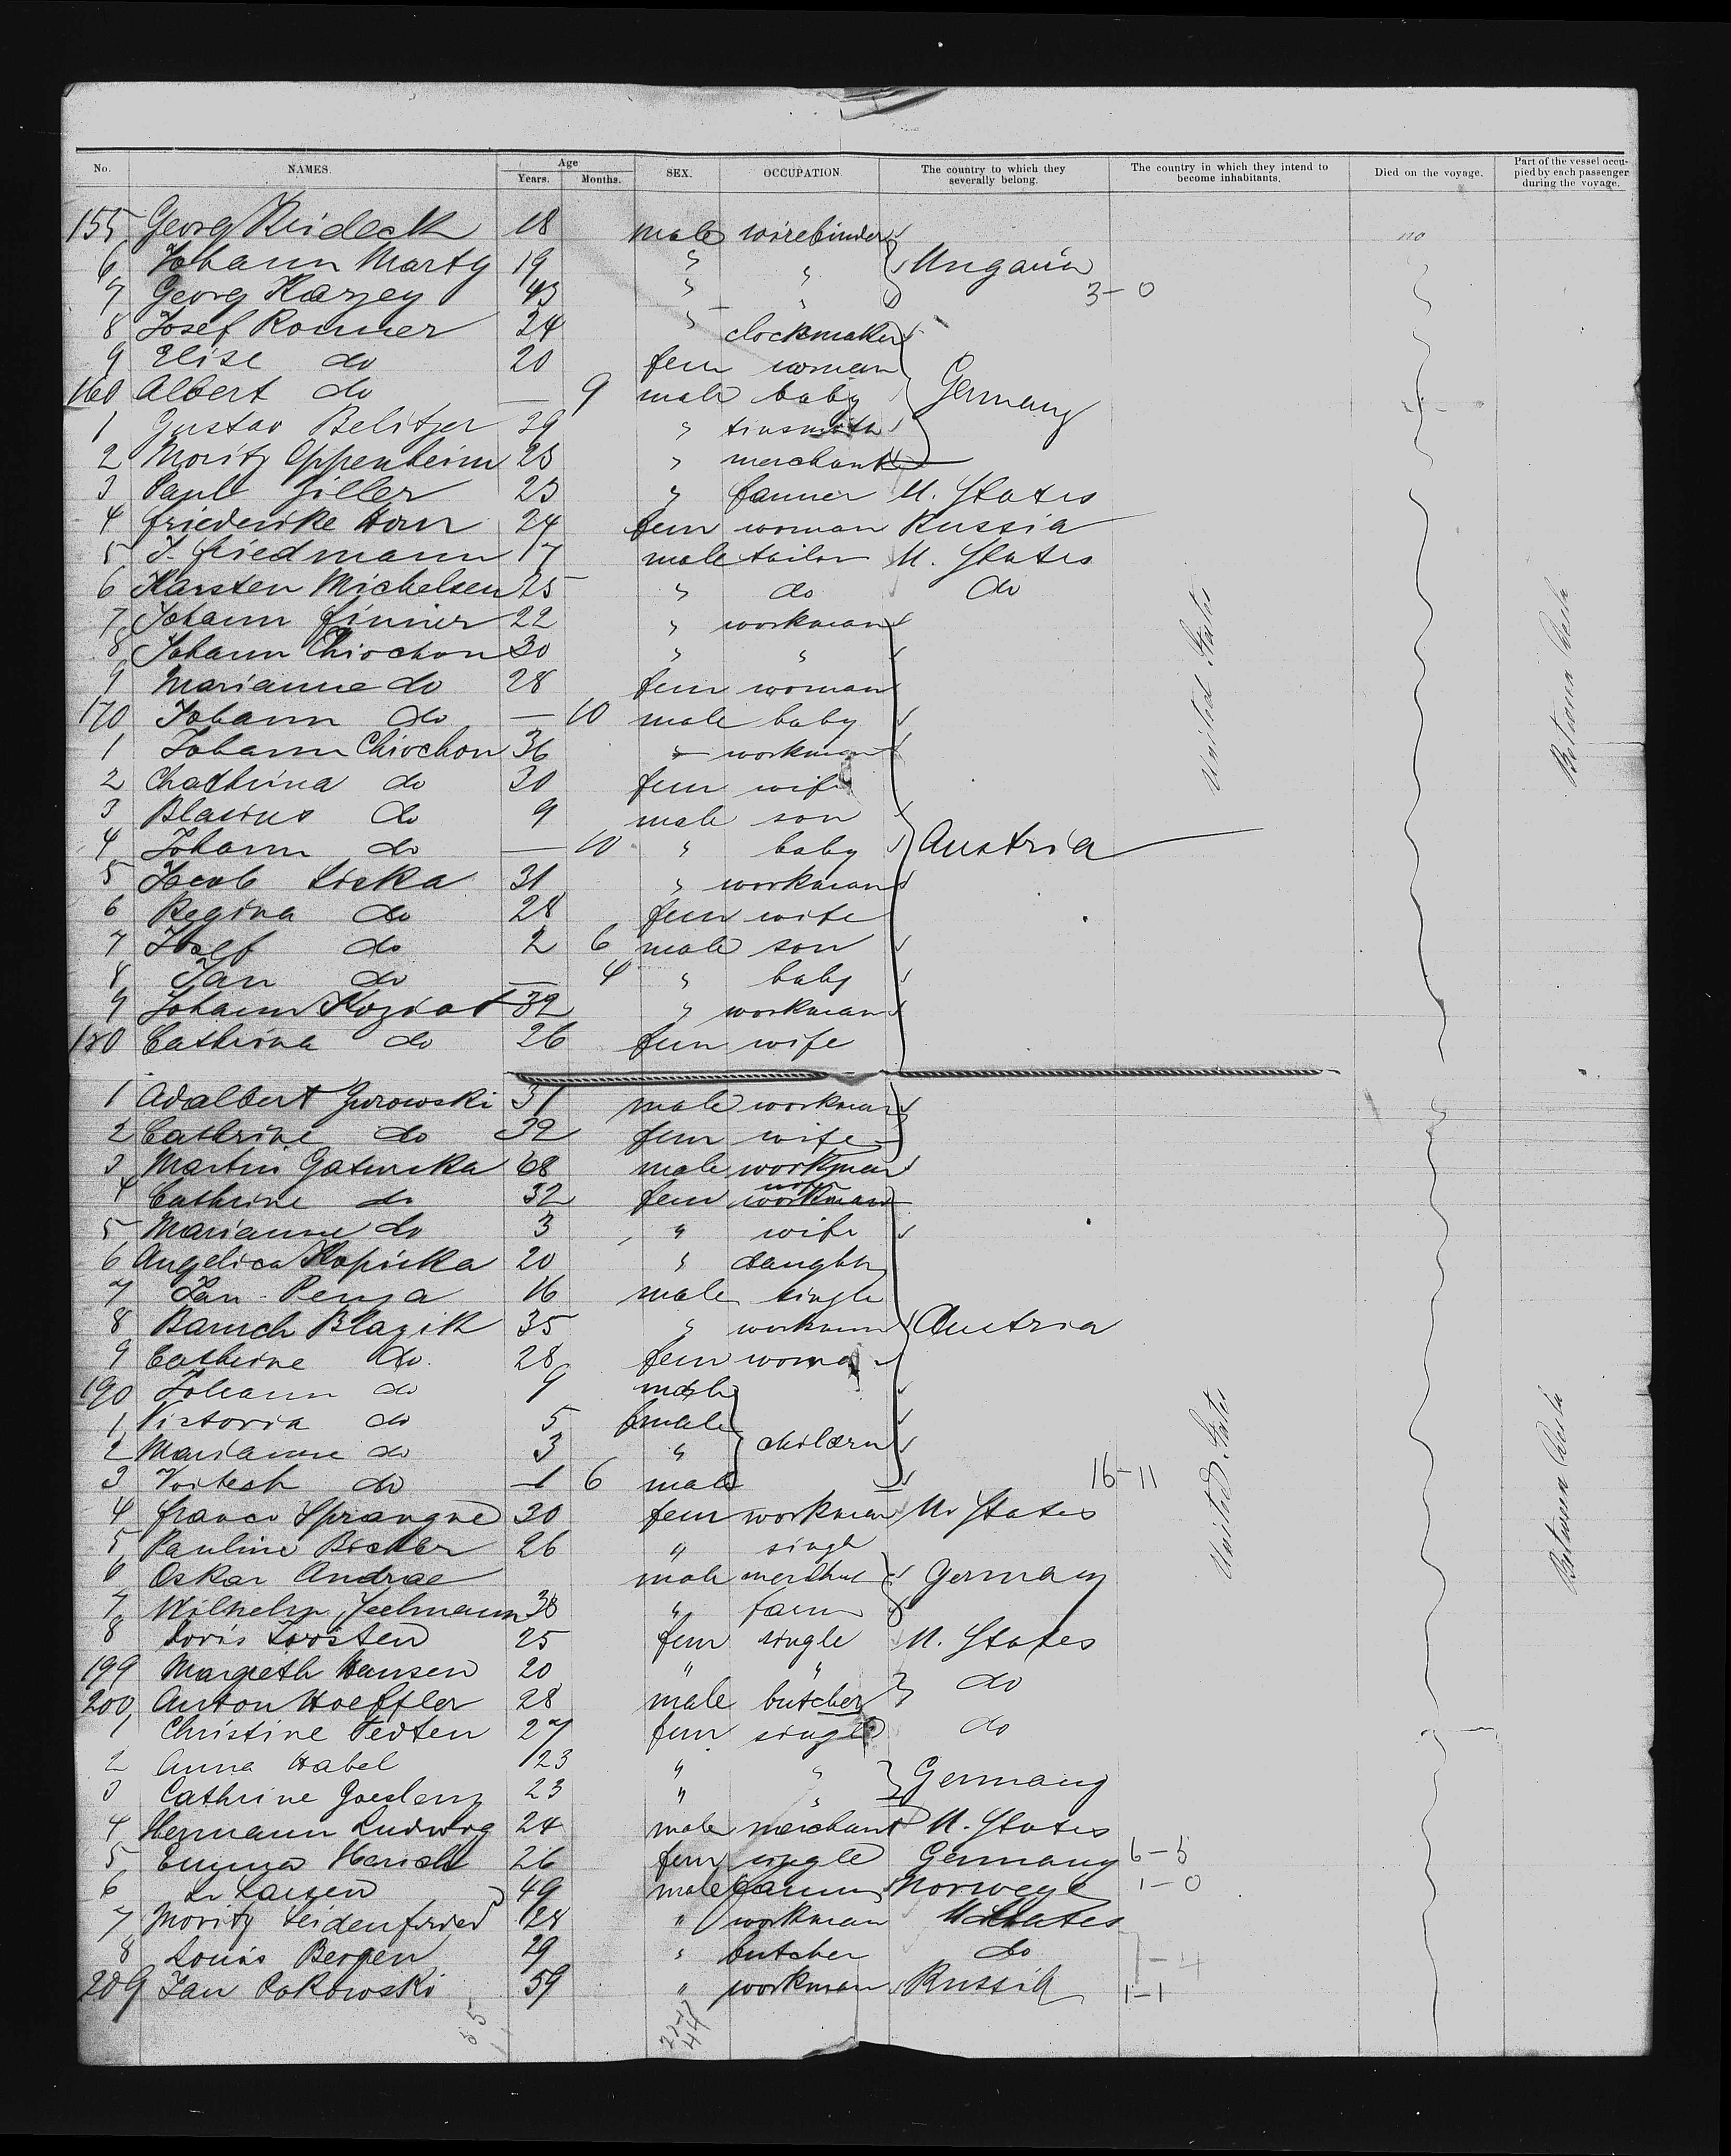 No. NAMES. Age Years. Months. SEX. OCCUPATION. The country to which they severally belong. The country in which they intend to become inhabitants. Died on the voyage. Part of the vessel occupied by each passenger during the voyage.
155 Georg Reideck 18 male wirebinder no
6 Johann Marty 19 " " Ungarin
7 Georg Karzey 43 " " 3-0
8 Josef Rommer 24 " clockmaker
9 Elise do 20 fem woman
160 Albert do — 9 male baby Germany
1 Gustav Belitzer 29 " tinsmith
2 Moritz Oppenheim 23 " merchant
3 Paul Ziller 23 " farmer U. States
4 Friederike Horn 24 fem woman Russia
5 J. Friedmann 17 male tailor U. States
6 Karsten Michelsen 25 " do do
7 Johann Finner 22 " workman
8 Johann Chrochon 30 " "
9 Marianne do 28 fem woman
170 Johann do — 10 male baby
1 Johann Chrochon 36 " workman
2 Chathrina do 30 fem wife
3 Blasius do 9 male son
4 Johann do — 10 " baby Austria
5 Jacob Liska 31 " workman
6 Regina do 28 fem wife
7 Josef do 2 6 male son
8 Jan do — 4 " baby
9 Johann Koziat 32 " workman
180 Cathrina do 26 fem wife
United States
Between Decks
1 Adalbert Zurowski 31 male workman
2 Cathrine do 32 fem wife
3 Martin Gaturska 68 male workman
4 Cathrine do 32 fem workman
5 Marianne do 3 " wife
6 Angelica Kopicka 20 " daughter
7 Jan Penza 16 male single
8 Baruch Blazik 35 " workman Austria
9 Cathrine do. 28 fem woman
190 Johann do 9 male
1 Victoria do 5 female
2 Marianne do 3 " children
3 Voitech do 1 6 male 16-11
4 Franco Sprangne 30 fem workman U. States
5 Pauline Becker 26 " single
6 Oskar Andrae male merchant Germany
7 Wilhelm Seelmann 38 " farm
8 Doris Lorsten 25 fem single U. States
199 Margreth Hansen 20 " "
200 Anton Hoeffler 28 male butcher do
1 Christine Tedten 27 fem single do
2 Anna Habel 23 " "
3 Cathrine 23 " " Germany
4 Hermann Ludwig 24 male merchant U. States
5 Emma 26 fem single Germany 6-5
6 Larsen 49 male farmer Norwege 1-0
7 Moritz Seidenfried 28 " workman U States
8 Louis Bergen 29 " butcher do 1-4
209 Jan Pokowski 59 " workman Russia 1-1
United States
Between Decks
55
44